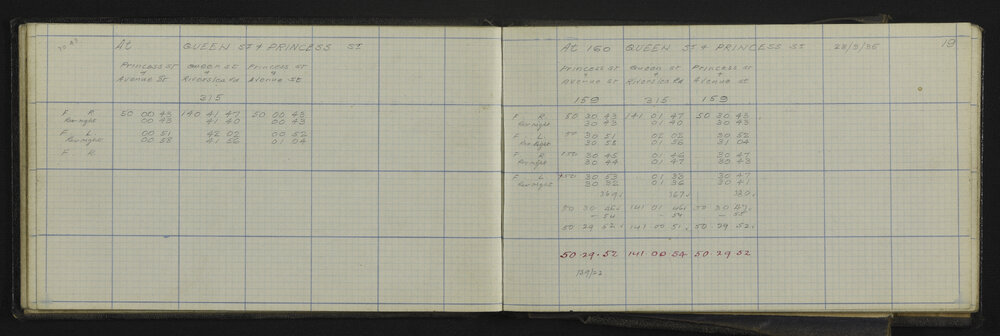 At QUEEN ST & PRINCESS ST.
Princess St Queen St Princess St
& & &
Avenue St Riverslea Rd Avenue St
315
F R 50 00 43 140 41 47 50 00 43
Rev right 00 43 41 40 00 43
F L 00 51 42 02 00 52
Rev right 00 58 41 56 01 04
F R
At 160 QUEEN ST & PRINCESS ST 19
Princess St Queen St Princess St
& & &
Avenue St Riverslea Rd Avenue St
159 315 159
F R 50 30 43 141 01 47 50 30 43
Rev right 30 43 01 40 30 43
F L 50 30 51 02 02 30 52
Rev right 30 58 01 56 31 04
F R 30 45 01 46 30 47
Rev right 30 44 01 47 30 43
F L 30 53 01 33 30 47
Rev right 30 32 01 36 30 41
369 367
50 30 46 141 01 50 30 47
- 54 - 54 - 55
50 29 52 141 00 51 50 29 52
50 29 52 141 00 54 50 29 52